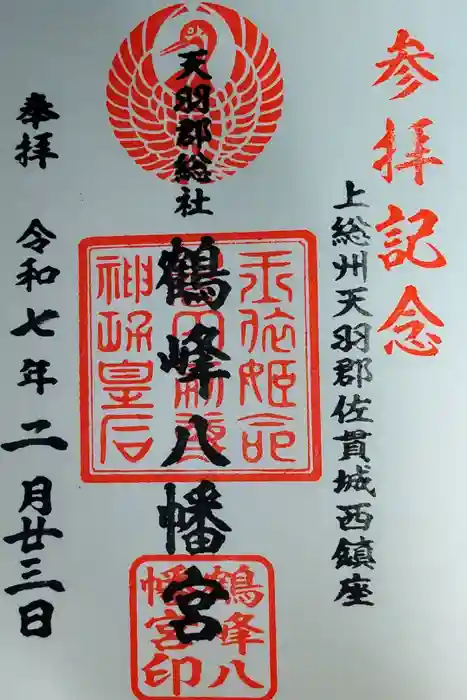 参拝記念
上総州天羽郡佐貫城西鎮座
天羽郡総社
鶴峰八幡宮
玉依姫命
神功皇后
鶴峰八
幡宮印
奉拝 令和七年二月廿三日